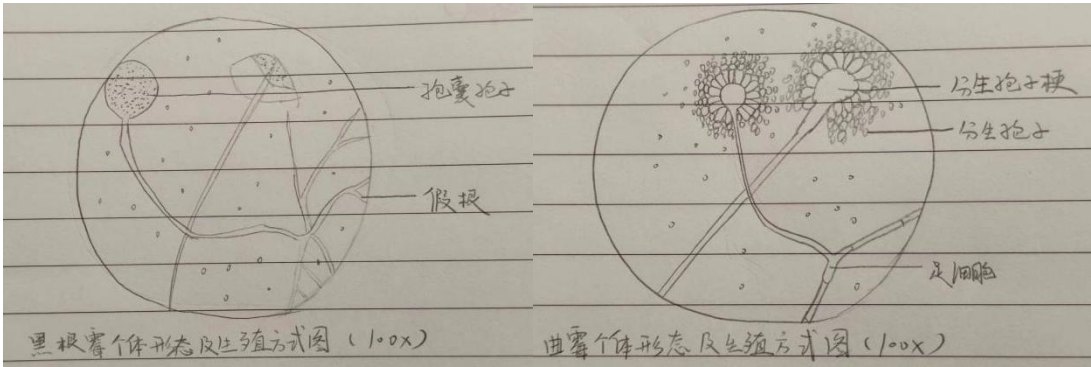 孢囊孢子
假根
黑根霉个体形态及生殖方式图(100x)
分生孢子梗
分生孢子
足细胞
曲霉个体形态及生殖方式图(100x)